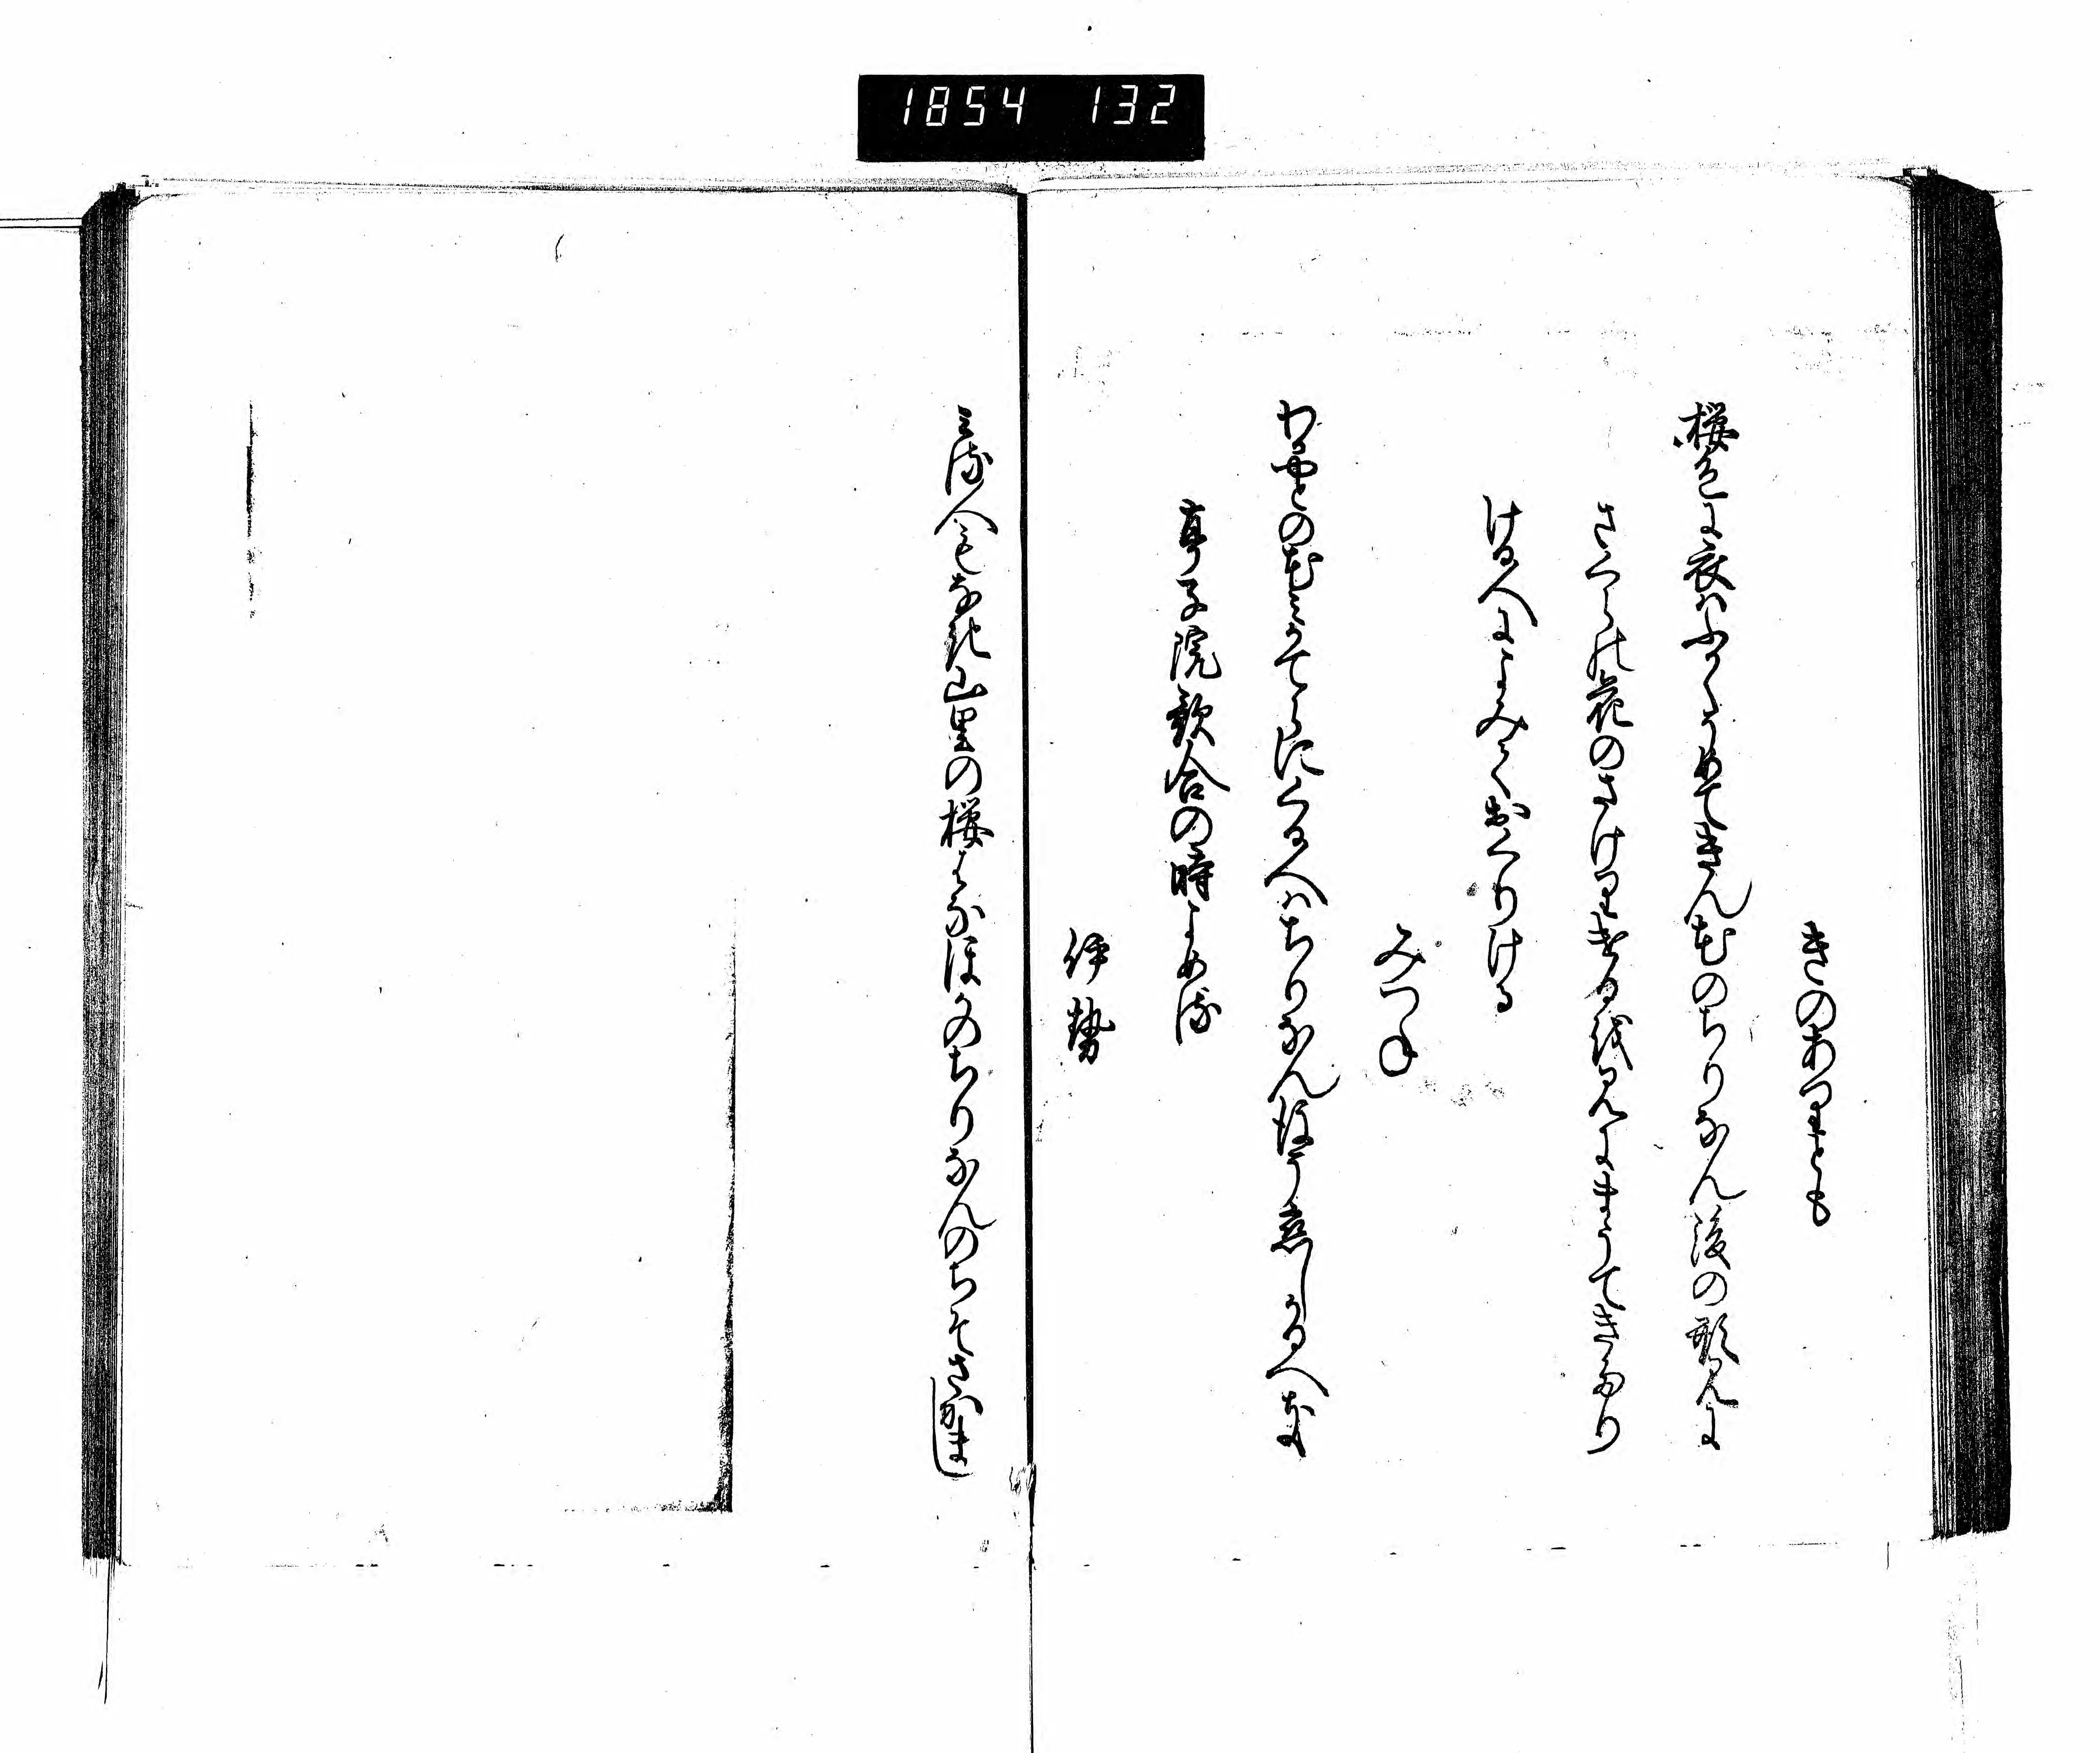 1854 132
きのありとも
桜色に衣はふかくそめてきん花のちりなん後の形見に
さくらの花のさけりけるを見にまうてきたり
ける人によみておくりける
みつね
わかやとの花みかてらにくる人はちりなん後そ恋しかるへき
亭子院歌合の時よめる
伊勢
みる人もなき山里の桜はなほかのちりなんのちそさかまし